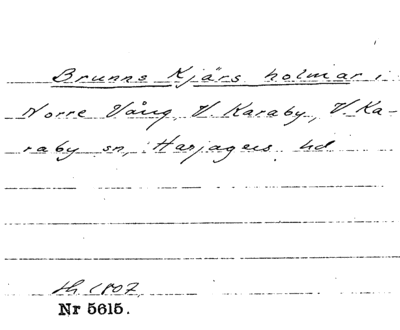 Brunns Kjärs holmar i
Norre Vång, V. Karaby, V. Ka-
raby sn, Harjagers hd
th. 1807
Nr 5615.